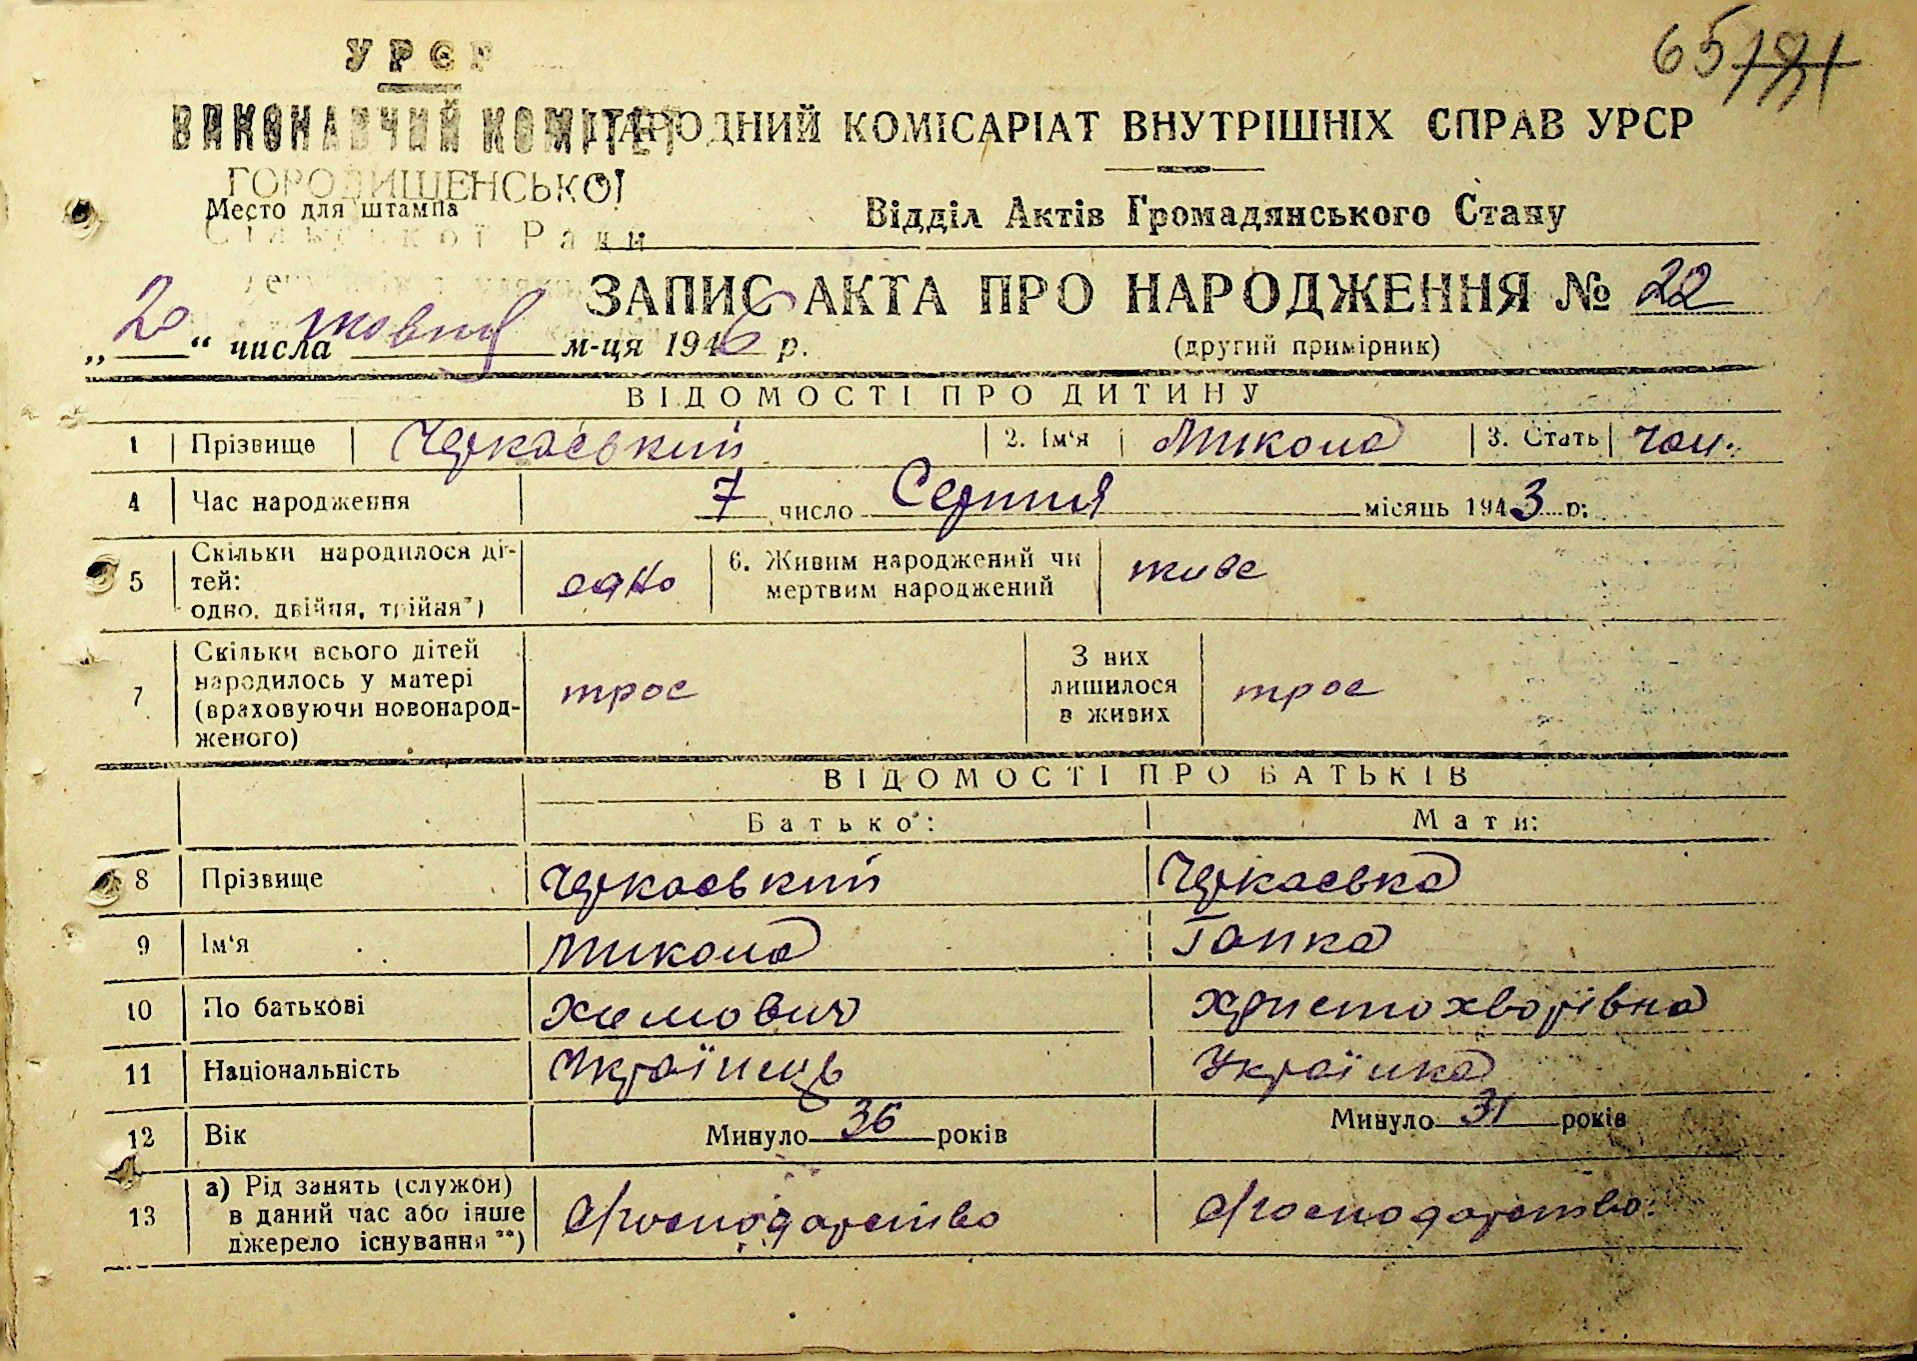 65
УРСР
ВИКОНАВЧИЙ КОМІТЕТ
НАРОДНИЙ КОМІСАРІАТ ВНУТРІШНІХ СПРАВ УРСР
ГОРОДИЩЕНСЬКОЇ
Место для штампа
Сільської Ради
Відділ Актів Громадянського Стану
ЗАПИС АКТА ПРО НАРОДЖЕННЯ № 22
„20“ числа жовтня м-ця 1946 р.
(другий примірник)
ВІДОМОСТІ ПРО ДИТИНУ
1 Прізвище Черкаський 2. Ім‘я Микола 3. Стать чол.
4 Час народження 7 число Серпня місяць 1943 р.
5 Скільки народилося ді-
тей:
одно, двійня, трійня*) едно
6. Живим народжений чи
мертвим народжений живе
7 Скільки всього дітей
народилось у матері
(враховуючи новонарод-
женого) трое
З них
лишилося
в живих трое
ВІДОМОСТІ ПРО БАТЬКІВ
Батько: Мати:
8 Прізвище Черкаський Черкаська
9 Ім‘я Микола Гапка
10 По батькові Химович Христохворівна
11 Національність Українець Українка
12 Вік Минуло 36 років Минуло 31 років
13 а) Рід занять (служби)
в даний час або інше
джерело існування**) господарство господарство.